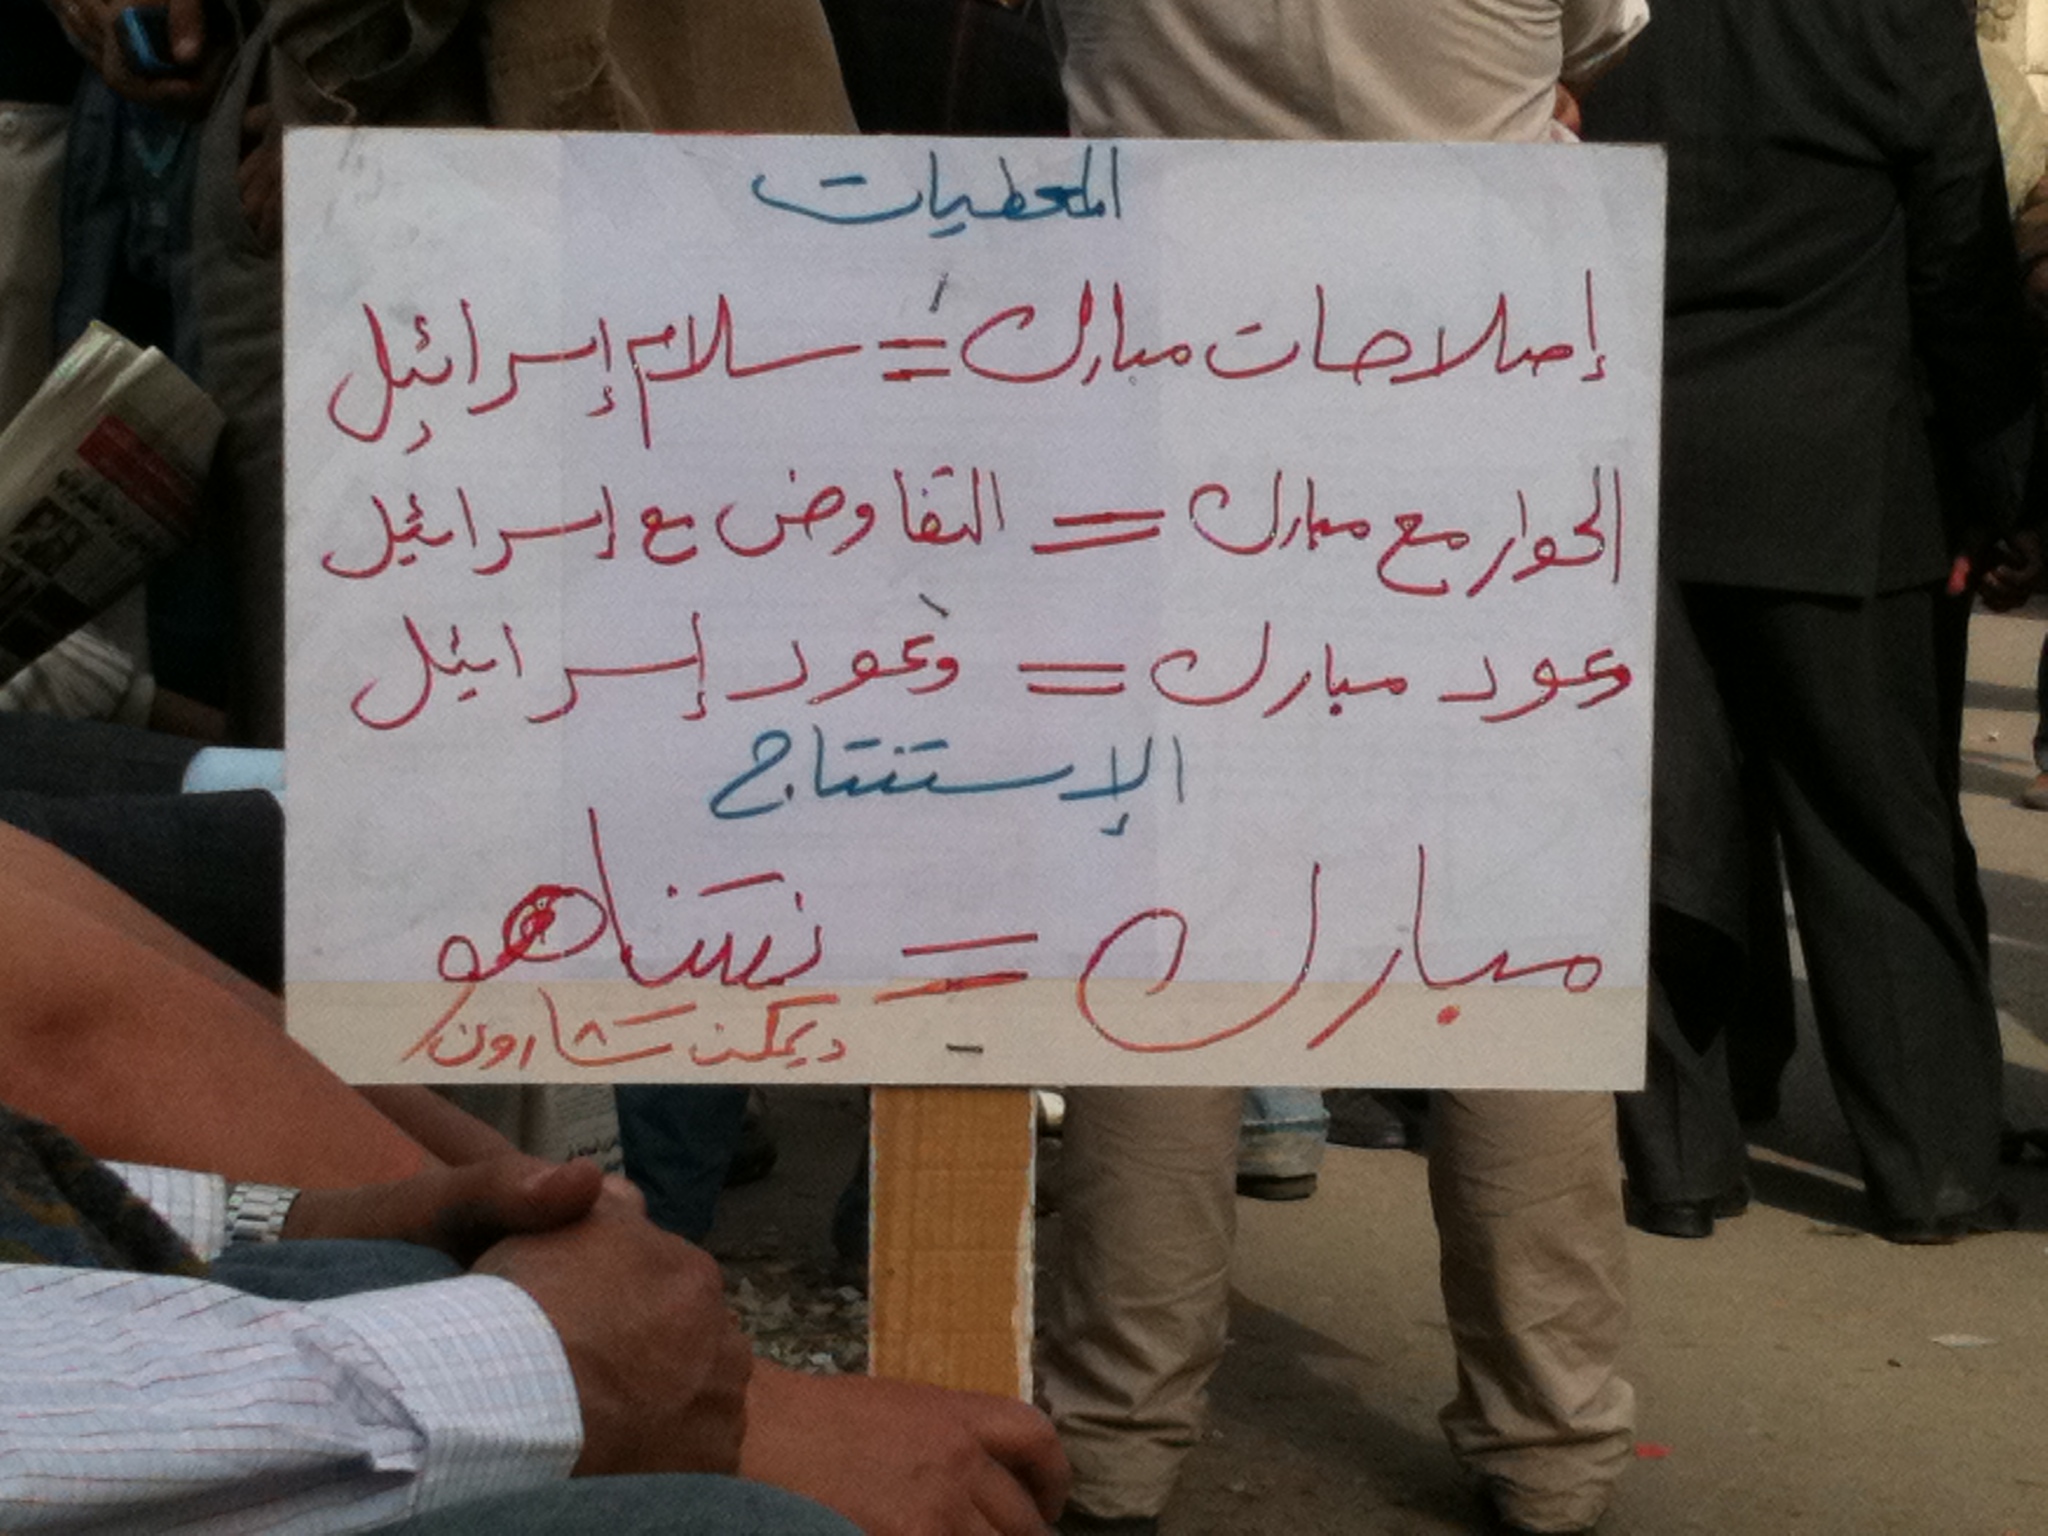 المعطيات
إصلاحات مبارك = سلام إسرائيل
الحوار مع مبارك = التفاوض مع إسرائيل
وعود مبارك = وعود إسرائيل
الإستنتاج
مبارك = نتناهو
ويمكن شارون